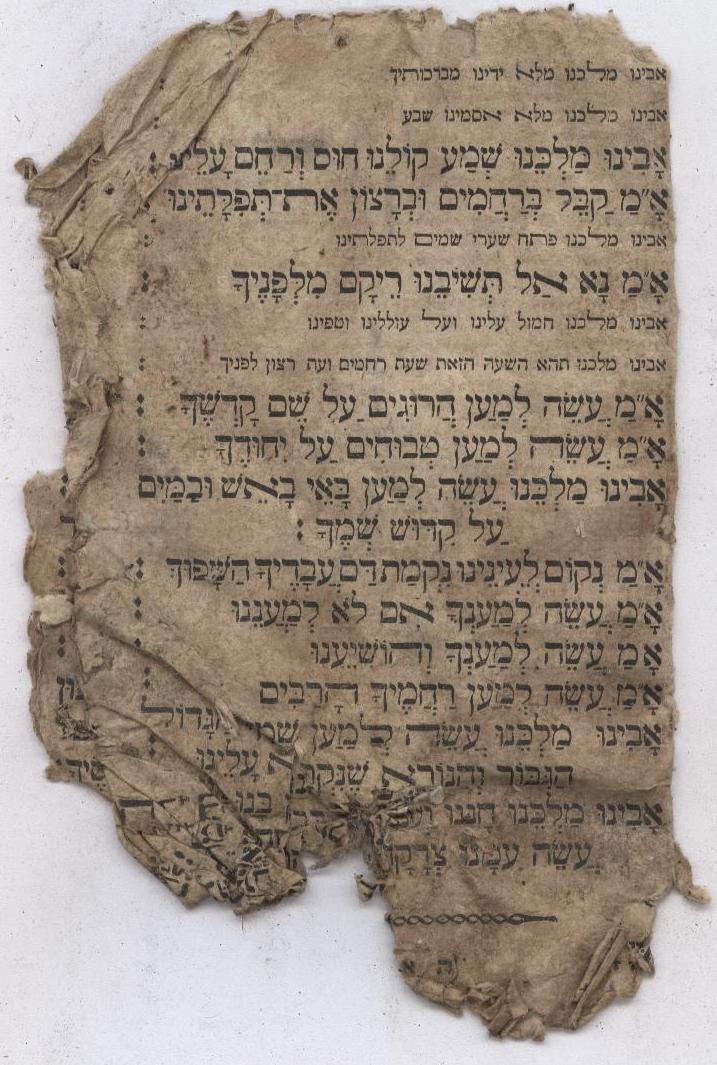 אבינו מלכנו מלא ידינו מברכותיך
אבינו מלכנו מלא אסמינו שבע
אָבִינוּ מַלְכֵּנוּ שְׁמַע קוֹלֵנוּ חוּס וְרַחֵם עָלֵינוּ
אָ״מַ קַבֵּל בְּרַחֲמִים וּבְרָצוֹן אֶת־תְּפִלָּתֵינוּ
אבינו מלכנו פתח שערי שמים לתפלתינו
אָ״מַ נָא אַל תְּשִׁיבֵנוּ רֵיקָם מִלְּפָנֶיךָ
אבינו מלכנו חמול עלינו ועל עוללינו וטפינו
אבינו מלכנו תהא השעה הזאת שעת רחמים ועת רצון לפניך
אָ״מַ עֲשֵׂה לְמַעַן הֲרוּגִים עַל שֵׁם קָדְשֶׁךָ
אָ״מַ עֲשֵׂה לְמַעַן טְבוּחִים עַל יִחוּדֶךָ
אָבִינוּ מַלְכֵּנוּ עֲשֵׂה לְמַעַן בָּאֵי בָאֵשׁ וּבַמַּיִם
עַל קִדּוּשׁ שְׁמֶךָ :
אָ״מַ נְקוֹם לְעֵינֵינוּ נִקְמַת דַּם עֲבָדֶיךָ הַשָּׁפוּךְ
אָ״מַ עֲשֵׂה לְמַעַנְךָ אִם לֹא לְמַעֲנֵנוּ
אָ״מַ עֲשֵׂה לְמַעַנְךָ וְהוֹשִׁיעֵנוּ
אָ״מַ עֲשֵׂה לְמַעַן רַחֲמֶיךָ הָרַבִּים
אָבִינוּ מַלְכֵּנוּ עֲשֵׂה לְמַעַן הַגָּדוֹל
הַגִּבּוֹר וְהַנּוֹרָא עָלֵינוּ
אָבִינוּ מַלְכֵּנוּ חָנֵּנוּ
עֲשֵׂה עִמָּנוּ